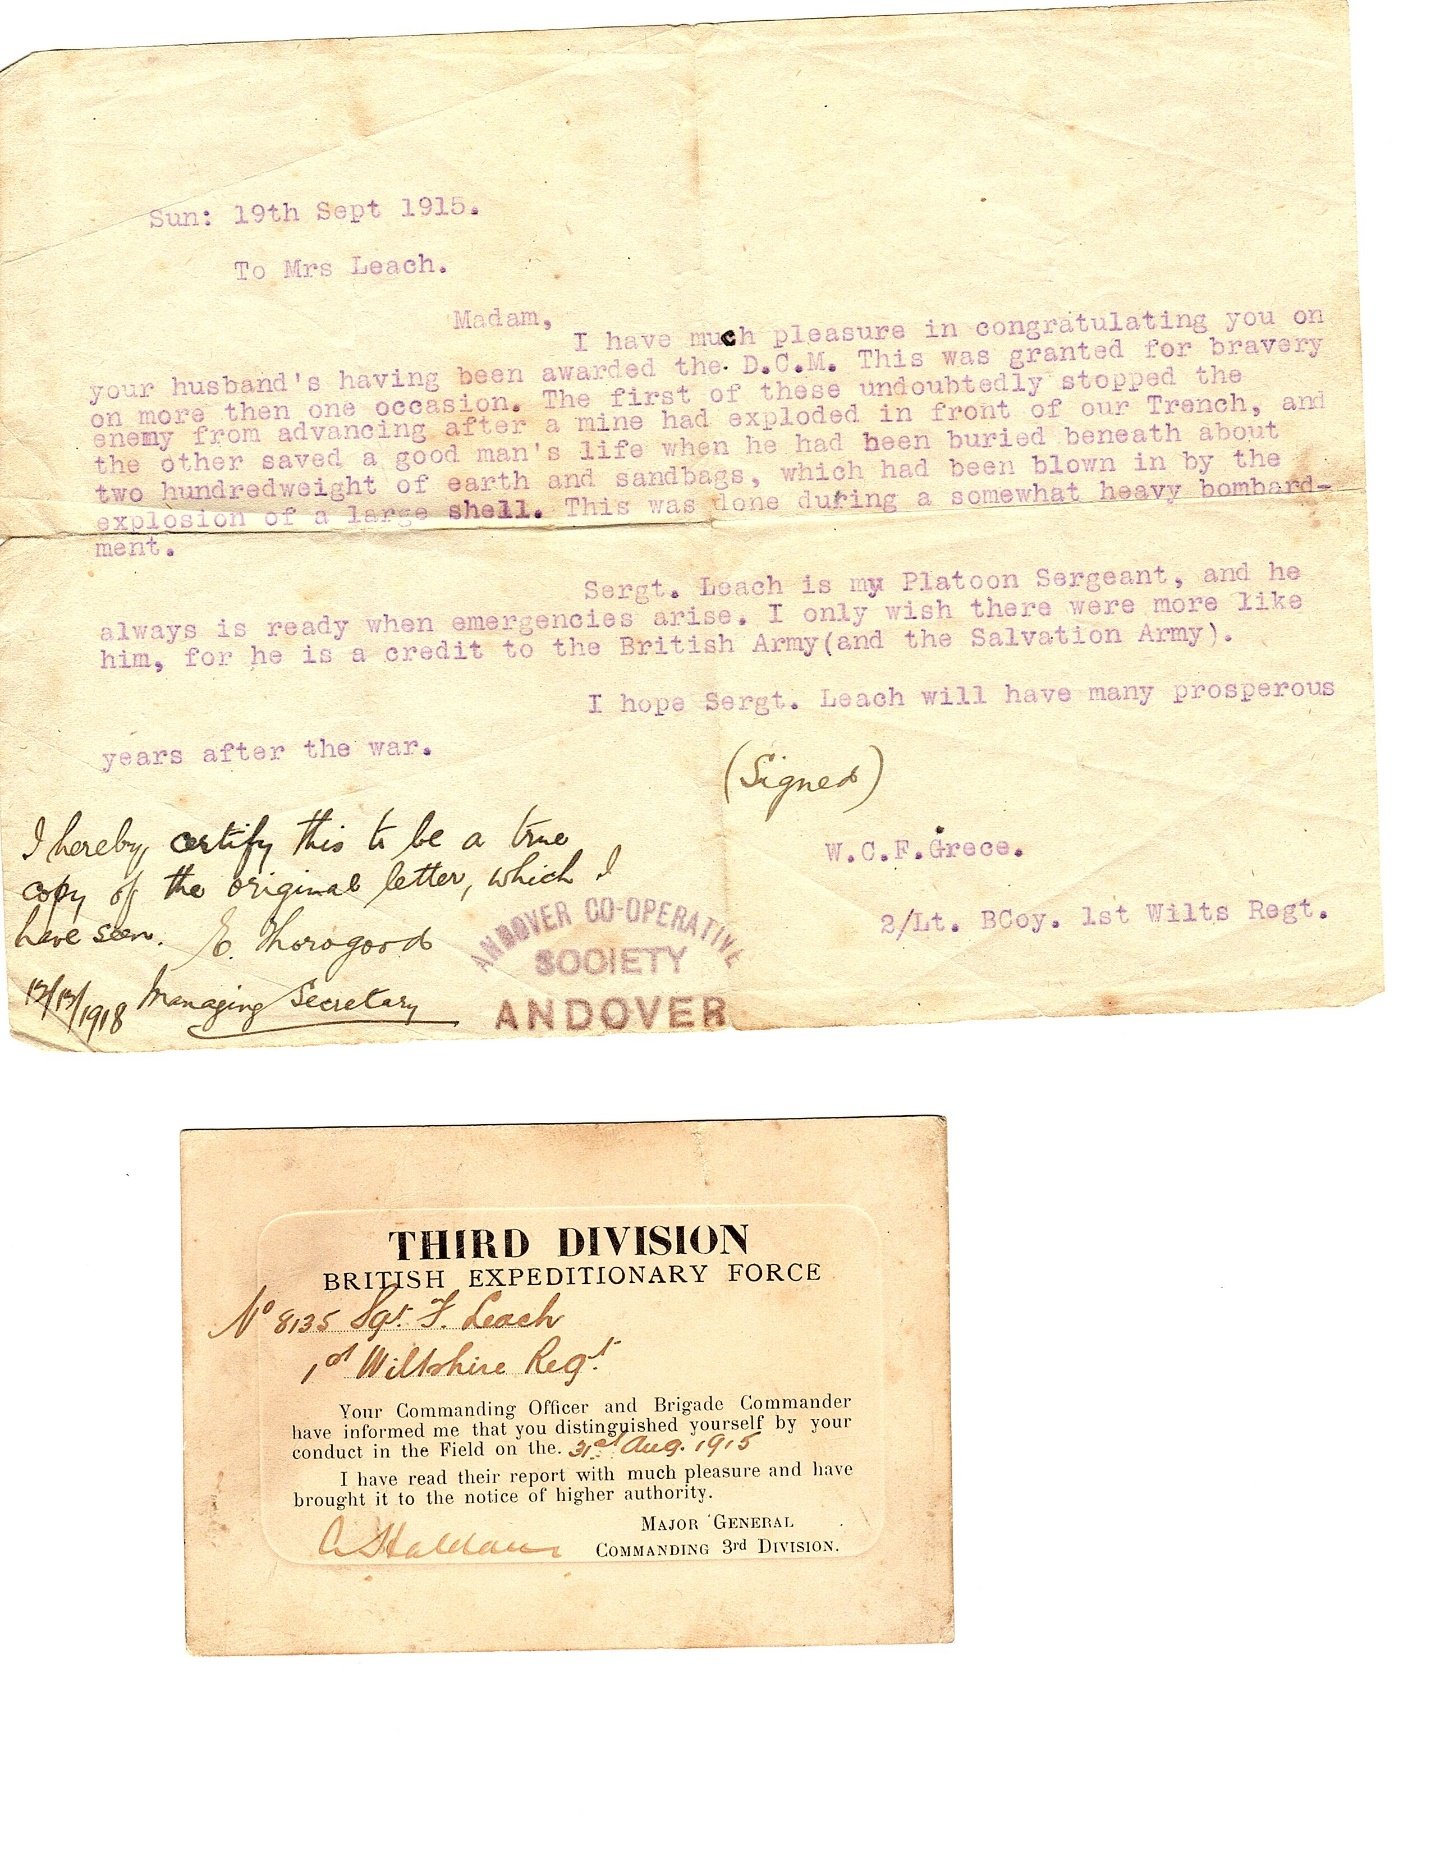 Sun: 19th Sept 1915.
To Mrs Leach.
Madam,
I have much pleasure in congratulating you on
your husband's having been awarded the D.C.M. This was granted for bravery
on more then one occasion. The first of these undoubtedly stopped the
enemy from advancing after a mine had exploded in front of our Trench, and
the other saved a good man's life when he had been buried beneath about
two hundredweight of earth and sandbags, which had been blown in by the
explosion of a large shell. This was done during a somewhat heavy bombard-
ment.
Sergt. Leach is my Platoon Sergeant, and he
always is ready when emergencies arise. I only wish there were more like
him, for he is a credit to the British Army(and the Salvation Army).
I hope Sergt. Leach will have many prosperous
years after the war.
(Signed)
W.C.F.Grece.
2/Lt. BCoy. 1st Wilts Regt.
I hereby certify this to be a true
copy of the original letter, which I
have seen. E. Thorogood
1918 Managing Secretary
ANDOVER CO-OPERATIVE
SOCIETY
ANDOVER
THIRD DIVISION
BRITISH EXPEDITIONARY FORCE
No 8135 Sgt. F. Leach
1st Wiltshire Regt.
Your Commanding Officer and Brigade Commander
have informed me that you distinguished yourself by your
conduct in the Field on the. 31st Aug. 1915
I have read their report with much pleasure and have
brought it to the notice of higher authority.
MAJOR GENERAL
Haldane COMMANDING 3rd DIVISION.